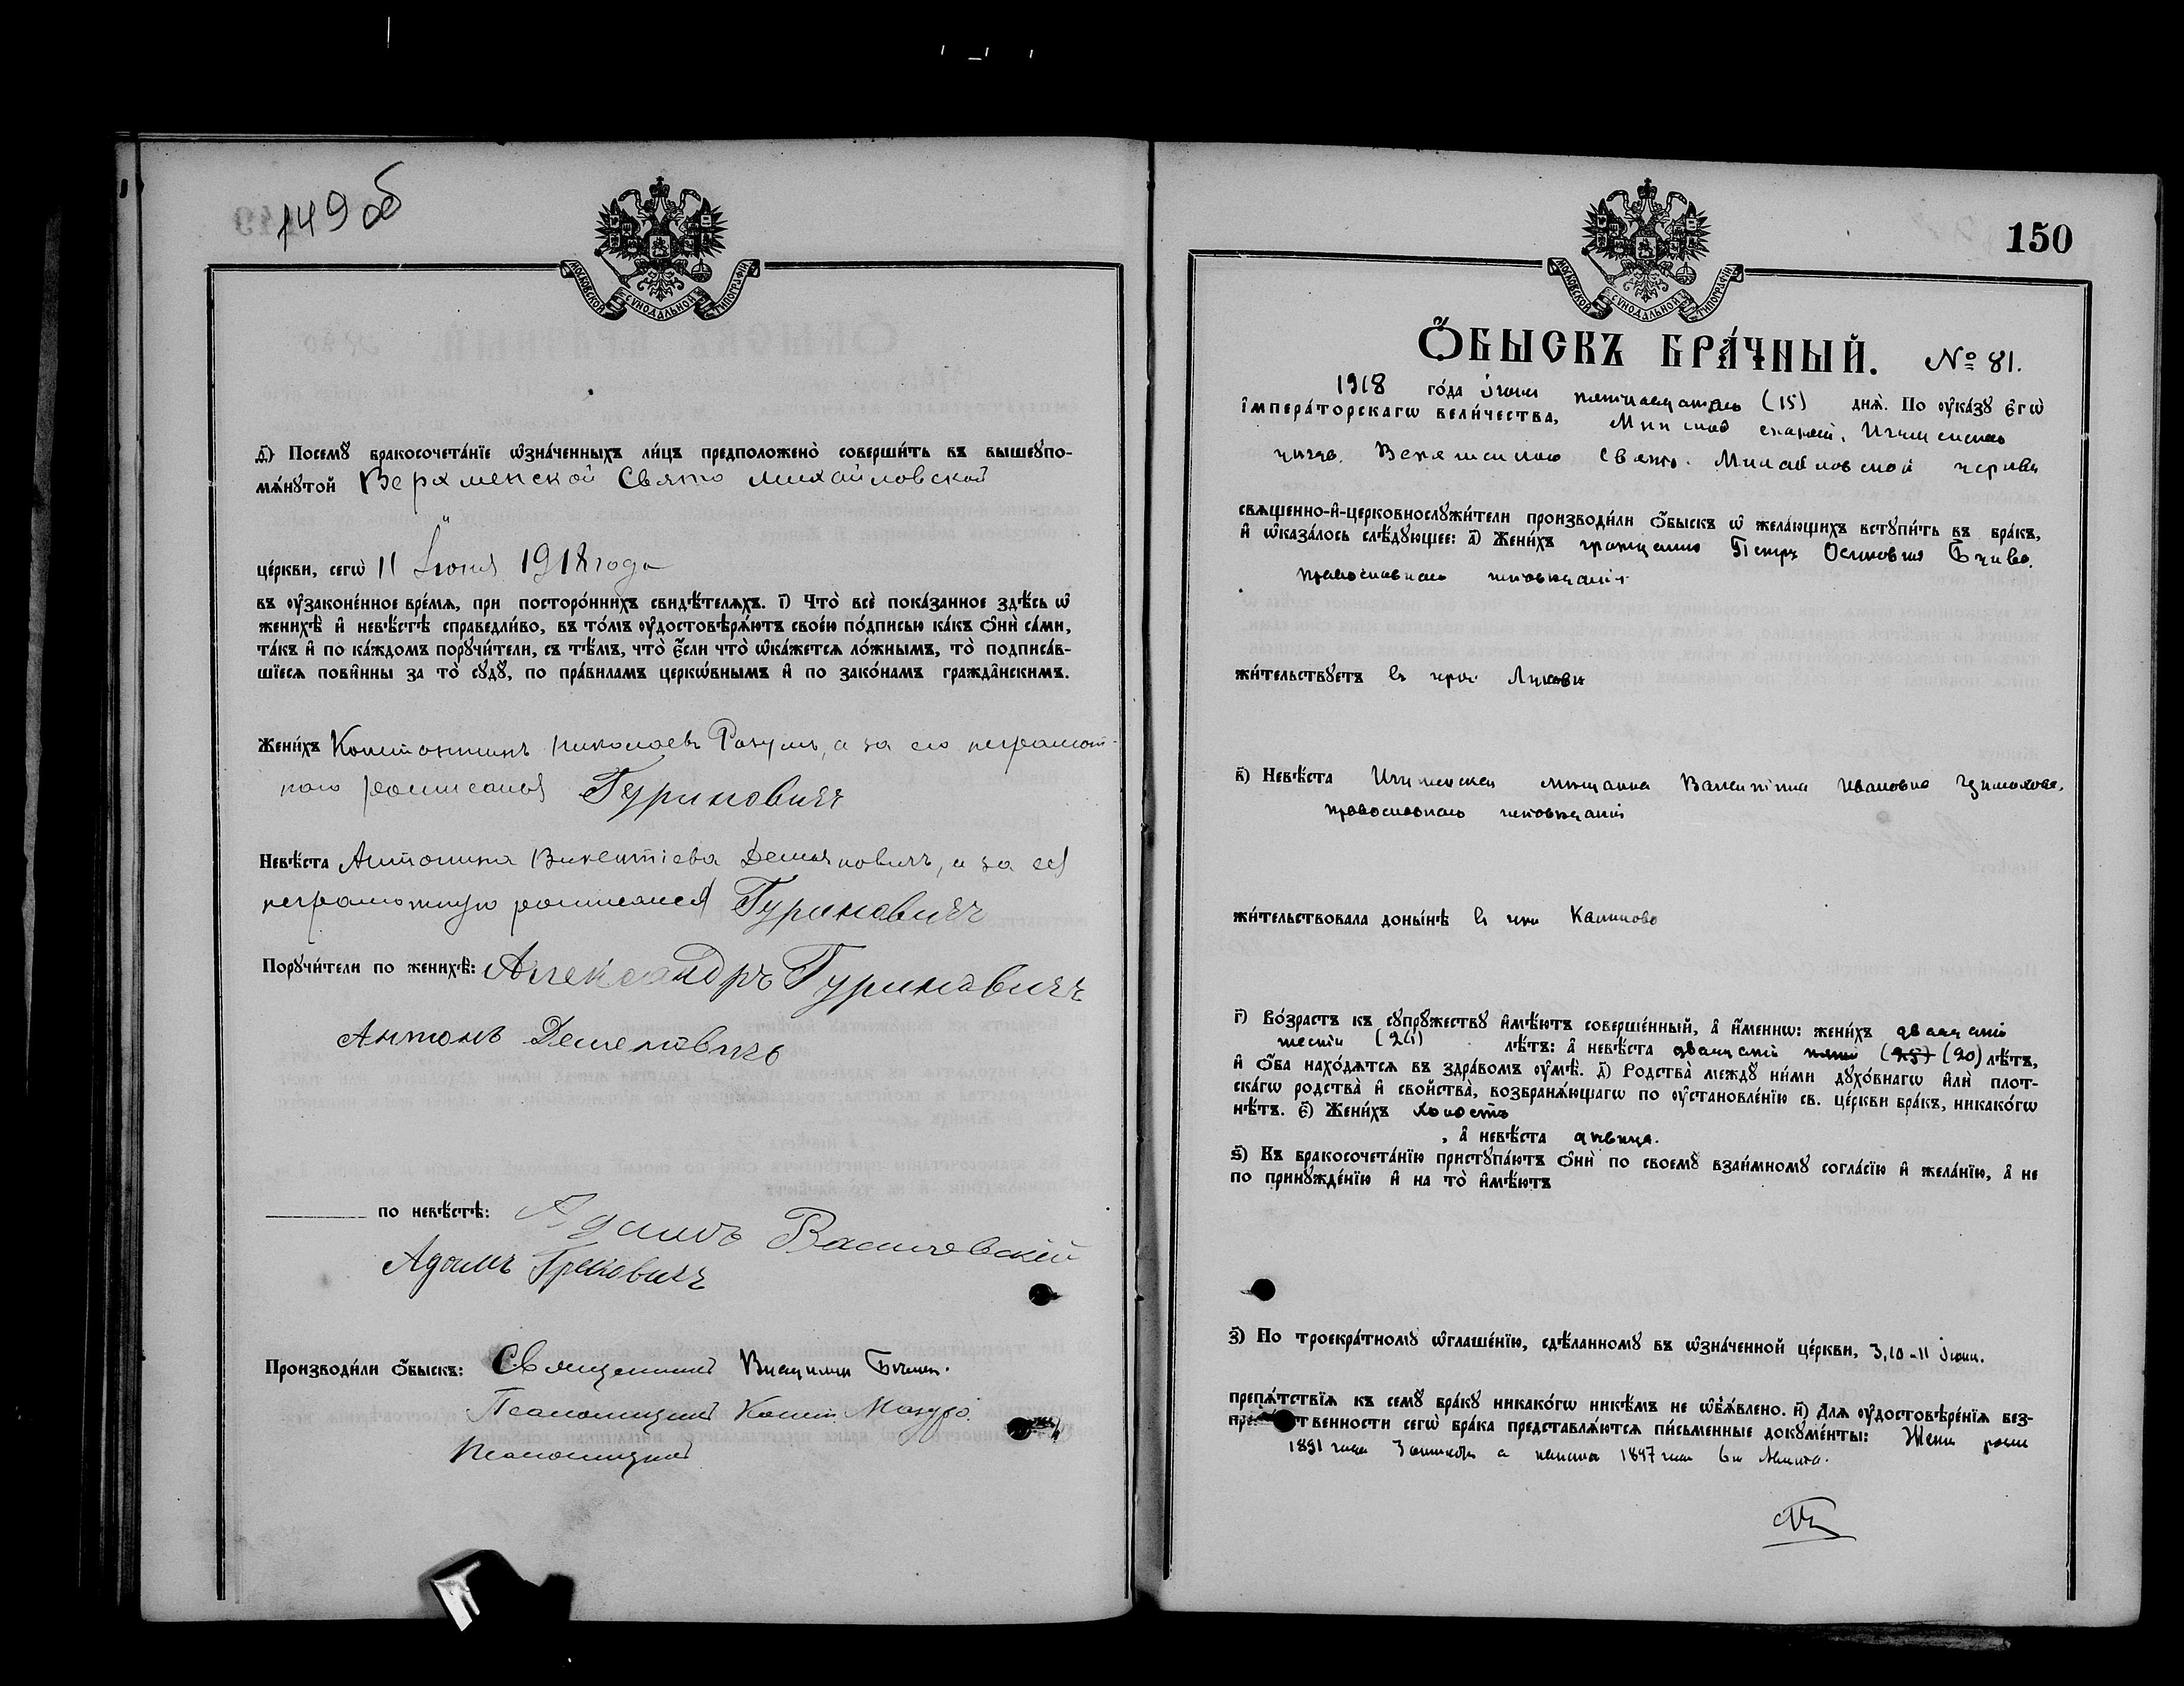 149 об
МОСКОВСКОЙ СѴНОДАЛЬНОЙ ТИПОГРАФІИ
д҃) Посемꙋ̀ бракосочета́нїе ѡ҆зна́ченныхъ ли́цъ предположено̀ соверши́ть въ вышеꙋпо-
мѧ́нꙋтой Верхменской Свято Михайловской
це́ркви, сегѡ̀ 11 Іюня 1918 года
въ ᲂу҆законе́нное вре́мѧ, при посторо́ннихъ свидѣ́телѧхъ. і҃) Что̀ всѐ пока́занное здѣ́сь ѡ҆
женихѣ̀ и҆ невѣ́стѣ справедли́во, въ то́мъ ᲂу҆достовѣрѧ́ютъ свое́ю по́дписью ка́къ ѻ҆нѝ са́ми,
та́къ и҆ по ка́ждомъ порꙋчи́тели, съ тѣ́мъ, что̀ є҆́сли что̀ ѡ҆ка́жетсѧ ло́жнымъ, то̀ подписа́в-
шїесѧ пови́нны за то̀ сꙋдꙋ̀, по пра́виламъ церкѡ́внымъ и҆ по зако́намъ гражда́нскимъ.
Жени́хъ Константинъ Николаевъ Разумъ, а за его неграмот-
наго росписался Гуриновичъ
Невѣ́ста Антонина Викентіева Демяновичъ, а за ея
неграмотную росписался Гуриновичъ
Порꙋчи́тели по женихѣ̀: Александръ Гуриновичъ
Антонъ
по невѣ́стѣ: Адамъ
Адамъ Грековичъ
Производи́ли ѻ҆́быскъ: Священникъ
Псаломщикъ Конст. Мазуро
Псаломщикъ
150
МОСКОВСКОЙ СѴНОДАЛЬНОЙ ТИПОГРАФІИ
Ѻ҆́БЫСКЪ БРА́ЧНЫЙ. № 81.
1918 го́да іюня пятнадцатаго (15) днѧ̀. По ᲂу҆ка́зꙋ є҆гѡ̀
і҆мпера́торскагѡ вели́чества, Минской епархіи, Игуменскаго
уѣзда. Верхменской Свято-Михайловской церкви
свѧще́нно-и҆-церковнослꙋжи́тели производи́ли ѻ҆́быскъ ѡ҆ жела́ющихъ встꙋпи́ть въ бра́къ,
и҆ ѡ҆каза́лось слѣ́дꙋющее: а҃) Жени́хъ гражданинъ Петръ Осиповъ
православнаго исповѣданія
жи́тельствꙋетъ въ
в҃) Невѣ́ста Игуменская мѣщанка Валентина Ивановна
православнаго исповѣданія
жи́тельствовала доны́нѣ въ
г҃) Во́зрастъ къ сꙋпрꙋ́жествꙋ и҆мѣ́ютъ соверше́нный, а҆ и҆́меннѡ: жени́хъ двадцати
лѣ́тъ: а҆ невѣ́ста двадцати пяти (25) (20) лѣ́тъ,
и҆ ѻ҆́ба нахо́дѧтсѧ въ здра́вомъ ᲂу҆мѣ̀. д҃) Родства̀ междꙋ̀ ни́ми дꙋхо́внагѡ и҆лѝ плот-
ска́гѡ родства̀ и҆ сво́йства̀, возбранѧ́ющагѡ по ᲂу҆становле́нїю св. це́ркви бра́къ, никако́гѡ
нѣ́тъ. є҃) Жени́хъ холостъ
, а҆ невѣ́ста дѣвица.
ѕ҃) Къ бракосочета́нїю пристꙋпа́ютъ ѻ҆нѝ по своемꙋ̀ взаи́мномꙋ согла́сїю и҆ жела́нїю, а҆ не
по принꙋжде́нїю и҆ на то̀ и҆мѣ́ютъ
з҃) По троекра́тномꙋ ѡ҆глаше́нїю, сдѣ́ланномꙋ въ ѡ҆зна́ченной це́ркви, 3, 10-11 іюня.
препѧ́тствїѧ къ семꙋ̀ бра́кꙋ никако́гѡ никѣ́мъ не ѡ҆б̾ѧ́влено. и҃) Длѧ̀ ᲂу҆достовѣре́нїѧ без-
препѧ́тственности сегѡ̀ бра́ка представлѧ́ютсѧ пи́сьменные докꙋме́нты:
1891 года